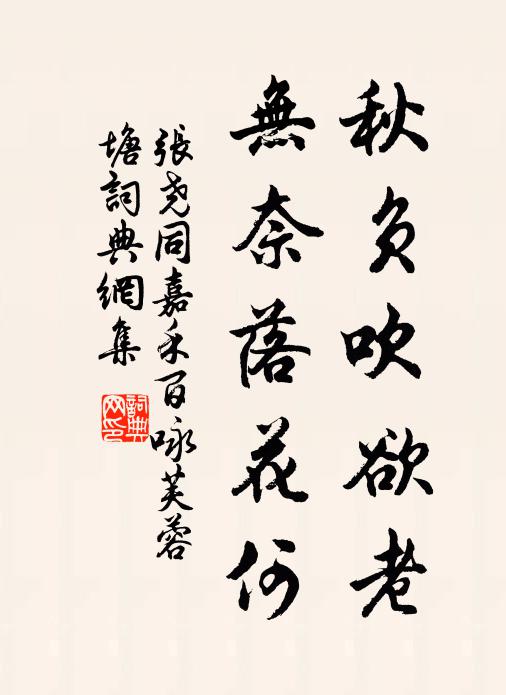 秋負吹欲老
無奈落花何
張堯同嘉禾百咏芙蓉
塘詞典網集
詞典
网印